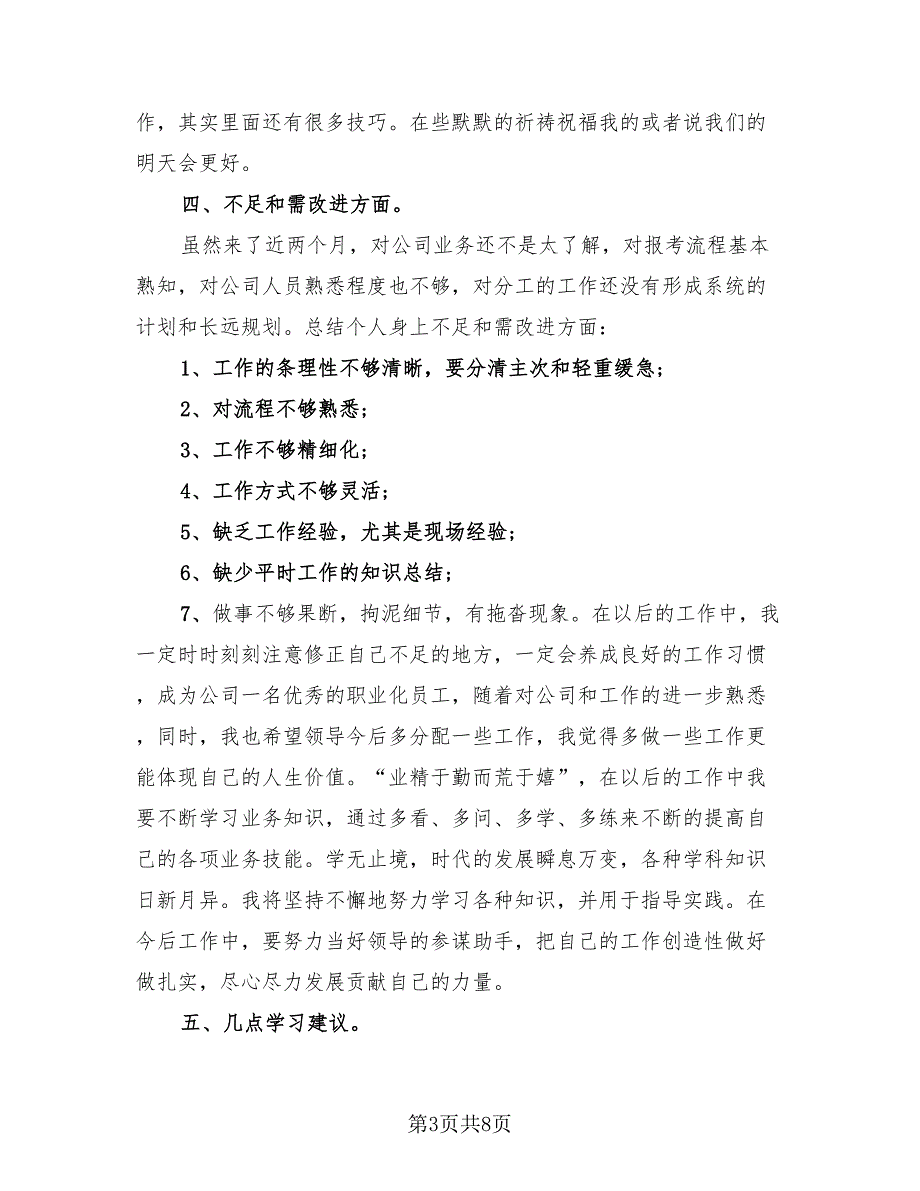 作，其实里面还有很多技巧。在些默默的祈祷祝福我的或者说我们的
明天会更好。
四、不足和需改进方面。
虽然来了近两个月，对公司业务还不是太了解，对报考流程基本
熟知，对公司人员熟悉程度也不够，对分工的工作还没有形成系统的
计划和长远规划。总结个人身上不足和需改进方面：
1、工作的条理性不够清晰，要分清主次和轻重缓急；
2、对流程不够熟悉；
3、工作不够精细化；
4、工作方式不够灵活；
5、缺乏工作经验，尤其是现场经验；
6、缺少平时工作的知识总结；
7、做事不够果断，拘泥细节，有拖沓现象。在以后的工作中，我
一定时时刻刻注意修正自己不足的地方，一定会养成良好的工作习惯
，成为公司一名优秀的职业化员工，随着对公司和工作的进一步熟悉
，同时，我也希望领导今后多分配一些工作，我觉得多做一些工作更
能体现自己的人生价值。“业精于勤而荒于嬉”，在以后的工作中我
要不断学习业务知识，通过多看、多问、多学、多练来不断的提高自
己的各项业务技能。学无止境，时代的发展瞬息万变，各种学科知识
日新月异。我将坚持不懈地努力学习各种知识，并用于指导实践。在
今后工作中，要努力当好领导的参谋助手，把自己的工作创造性做好
做扎实，尽心尽力发展贡献自己的力量。
五、几点学习建议。
第3页共8页